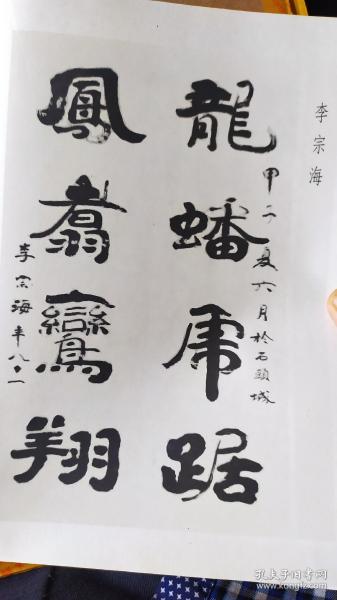 李宗海
龍蟠虎踞
甲子夏六月於石頭城
鳳翥鸞翔
李宗海年八十一
孔夫子旧书网